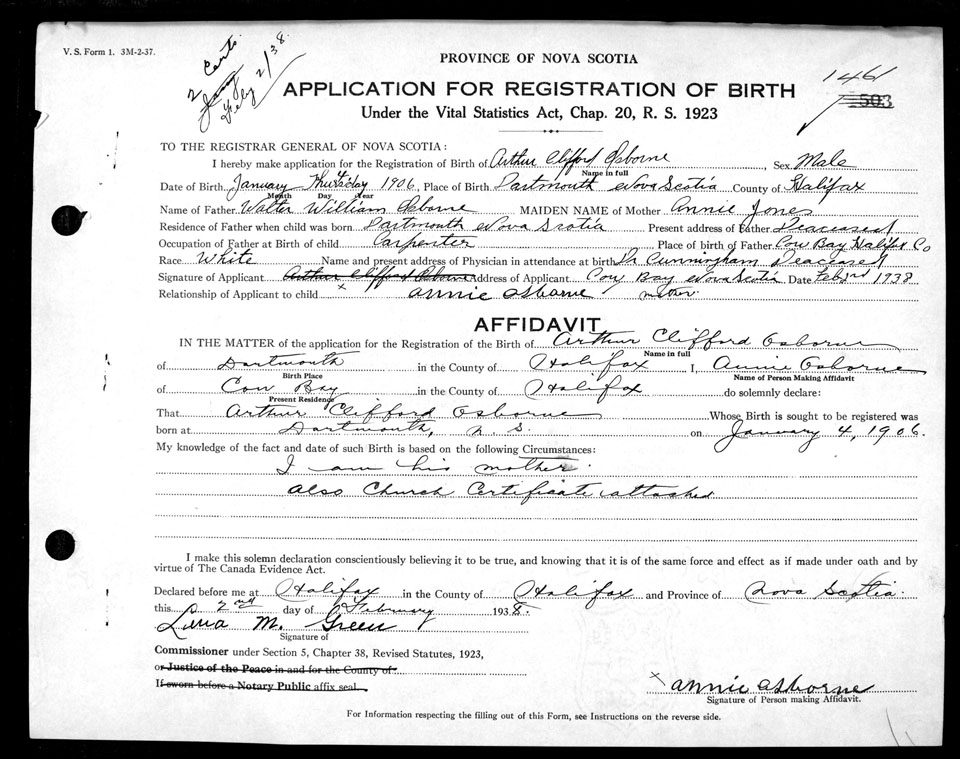 V. S. Form 1. 3M-2-37.
2 Certs.
Feby 2/38.
PROVINCE OF NOVA SCOTIA
1461
503
APPLICATION FOR REGISTRATION OF BIRTH
Under the Vital Statistics Act, Chap. 20, R. S. 1923
TO THE REGISTRAR GENERAL OF NOVA SCOTIA:
I hereby make application for the Registration of Birth of Arthur Clifford Osborne Sex Male
Name in full
Date of Birth January Thursday 4 1906, Place of Birth Dartmouth Nova Scotia County of Halifax
Month Day Year
Name of Father Walter William Osborne MAIDEN NAME of Mother Annie Jones
Residence of Father when child was born Dartmouth Nova Scotia Present address of Father Deceased
Occupation of Father at Birth of child Carpenter Place of birth of Father Cow Bay Halifax Co
Race White Name and present address of Physician in attendance at birth Dr Cunningham Deceased
Signature of Applicant Arthur Clifford Osborne Address of Applicant Cow Bay Nova Scotia Date Feb 2nd 1938
Relationship of Applicant to child x Annie Osborne mother
AFFIDAVIT
IN THE MATTER of the application for the Registration of the Birth of Arthur Clifford Osborne
Name in full
of Dartmouth in the County of Halifax I, Annie Osborne
Birth Place Name of Person Making Affidavit
of Cow Bay in the County of Halifax do solemnly declare:
Present Residence
That Arthur Clifford Osborne Whose Birth is sought to be registered was
born at Dartmouth, N. S. on January 4, 1906.
My knowledge of the fact and date of such Birth is based on the following Circumstances:
I am his mother.
Also Church Certificate attached
I make this solemn declaration conscientiously believing it to be true, and knowing that it is of the same force and effect as if made under oath and by
virtue of The Canada Evidence Act.
Declared before me at Halifax in the County of Halifax and Province of Nova Scotia
this 2nd day of February 1938.
Lena M. Green
Signature of
Commissioner under Section 5, Chapter 38, Revised Statutes, 1923,
or Justice of the Peace in and for the County of
If sworn before a Notary Public affix seal.
x Annie Osborne
Signature of Person making Affidavit.
For Information respecting the filling out of this Form, see Instructions on the reverse side.